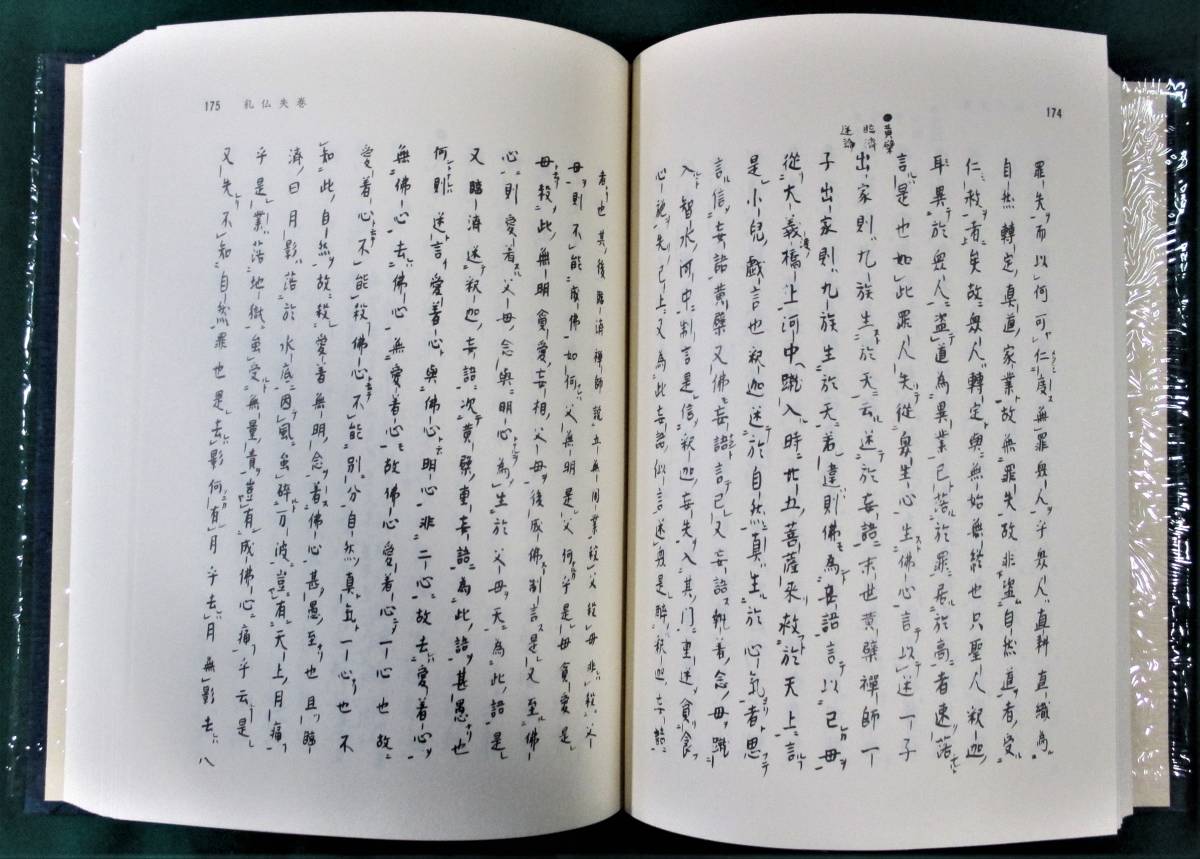 174
●黄檗
臨済
迷論
罪失而以何可仁乎無罪衆人乎衆人直耕直織為
自然轉定真道家業故無罪失故非盗自然道者受
仁救者矣故衆人轉定與無始無終也只聖人釈迦
耳異於衆人盗道為異業已落於罪居於高者速落
言是也如此罪人失從衆生心生佛心言以迷一子
出家則九族生於天云迷於妄語末世黄檗禅師一
子出家則九族生於天若違則佛為妄語言以已母
從大義橋上河中蹴入時廿五菩薩来救於天上言
是小兒戯言也釈迦迷於自然真生於心氣者思
言信妄語黄檗又佛妄語言已又妄語執着念母蹴
入智水河中制言是信釈迦妄失入其门重迷貪食
心祝失已上又為此妄語似言迷毎是酔釈迦妄語
175 私仏失巻
者也其後臨済禅師説五無間業殺父殺母非殺父
母則不能成佛如何父無明是父何乎是母貪愛是
母殺此無明貪愛妄相父母後成佛制言是又至佛
心則愛着父母念與明心為生於父母天為此語是
又臨済迷釈迦妄語次黄檗重妄語為此語甚愚也
何則迷言愛着心與佛心明心非二心故去愛着心
無佛心去佛心無愛着心故佛心愛着心一心也故
愛着心不能殺佛心不能別分自然真五一心也不
知此自然故殺愛着無明念着佛心甚愚至也且臨
済曰月影落於水底因風虽碎万波豈有天上月痛
乎是業落地獄虽受無量責豈有成佛心痛乎云是
又失不知自然罪也是去影何有月乎去月無影去八